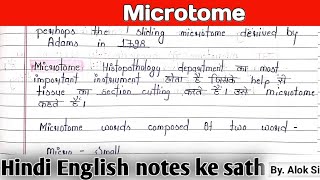 Microtome
perhaps the 1 sliding microtome derived by
Adams in 1798.
Microtome - Histopathology department का most
important instrument होता है जिसके help से
tissue का section cutting करते हैं। उसे microtome
कहते हैं।
Microtome words composed of two word -
Micro - Small
Hindi English notes ke sath
By. Alok Si